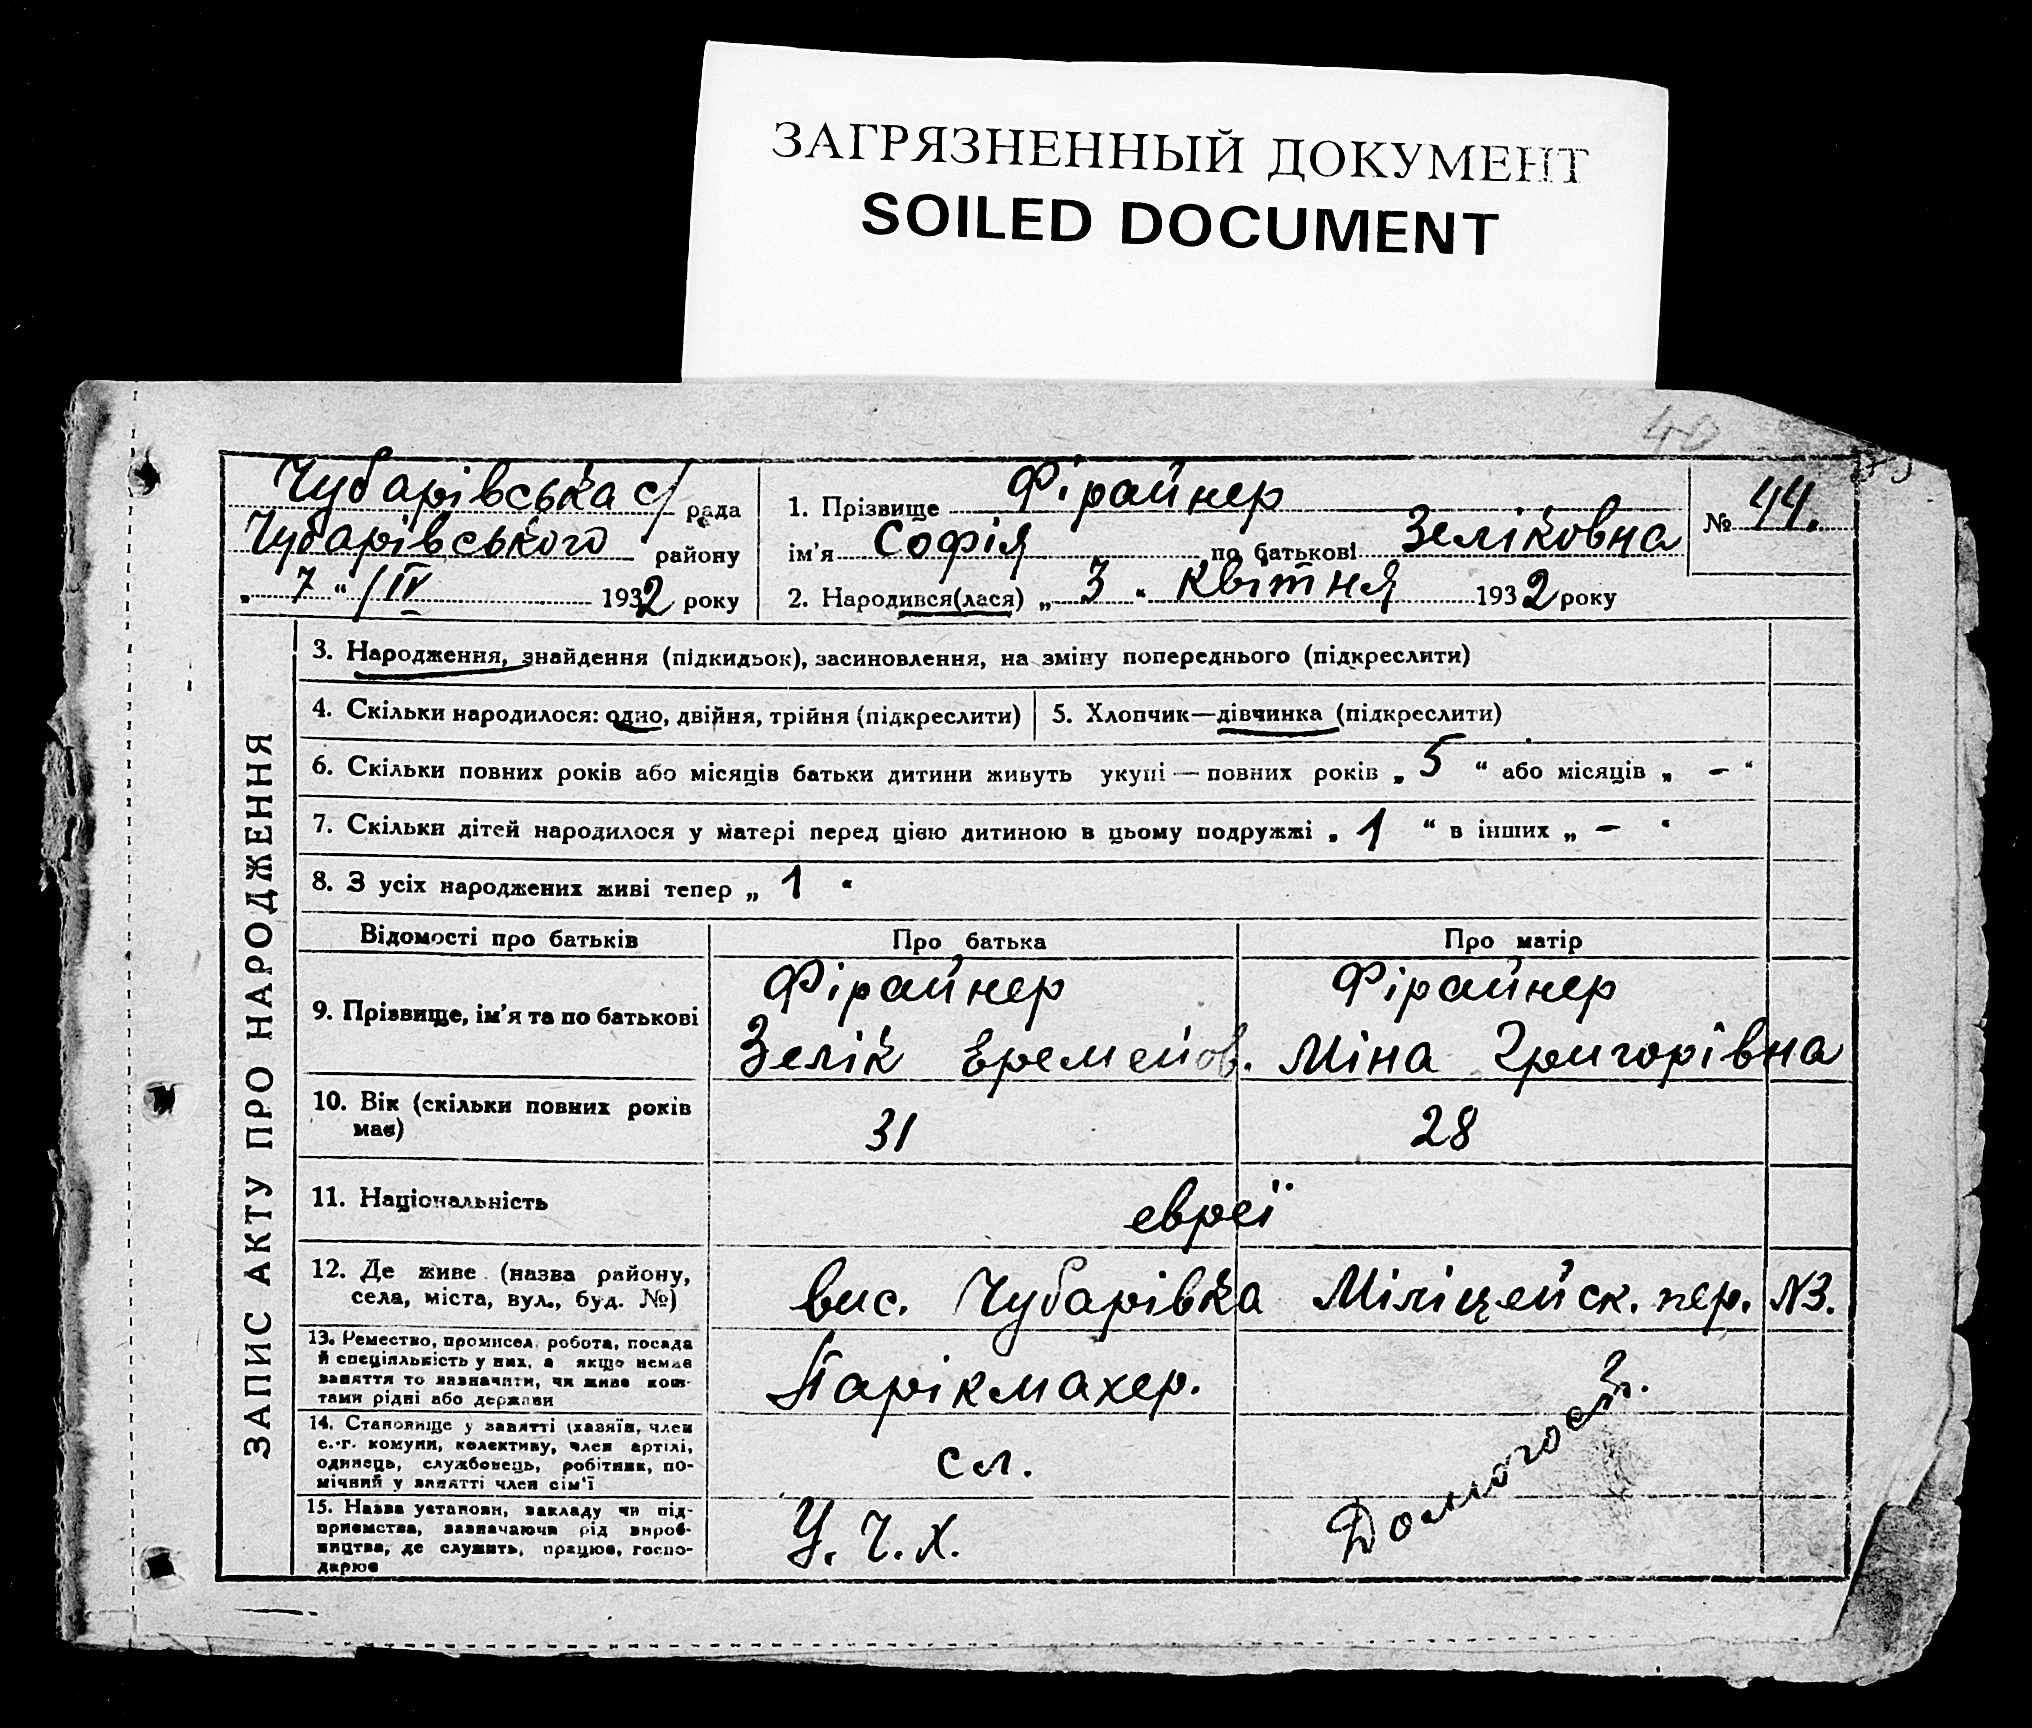 ЗАГРЯЗНЕННЫЙ ДОКУМЕНТ
SOILED DOCUMENT
40
Чубарівська с/ рада
Чубарівського району
„ 7 “ / IV 1932 року
1. Прізвище Фірайнер
ім’я Софія по батькові Зеліковна
2. Народився(лася) „ 3 “ квітня 1932 року
№ 44.
ЗАПИС АКТУ ПРО НАРОДЖЕННЯ
3. Народження, знайдення (підкидьок), засиновлення, на зміну попереднього (підкреслити)
4. Скільки народилося: одно, двійня, трійня (підкреслити)
5. Хлопчик—дівчинка (підкреслити)
6. Скільки повних років або місяців батьки дитини живуть укупі — повних років „ 5 “ або місяців „ – “
7. Скільки дітей народилося у матері перед цією дитиною в цьому подружжі „ 1 “ в інших „ – “
8. З усіх народжених живі тепер „ 1 “
Відомості про батьків
Про батька
Про матір
9. Прізвище, ім’я та по батькові
Фірайнер
Зелік Еремейов.
Фірайнер
Міна Григорівна
10. Вік (скільки повних років
має)
31
28
11. Національність
евреї
12. Де живе (назва району,
села, міста, вул., буд. №)
вис. Чубарівка Міліцейск. пер. №3.
13. Ремество, промисел, робота, посада
й спеціяльність у них, а якщо немає
заняття то зазначити, чи живе кош-
тами рідні або держави
Парікмахер.
14. Становище у занятті (хазяїн, член
с.-г. комуни, колективу, член артілі,
одинець, службовець, робітник, по-
мічний у занятті член сім’ї
сл.
15. Назва установи, закладу чи під-
приємства, зазначаючи рід вироб-
ництва, де служить, працює, госпо-
дарює
У. Ч. Х.
Домогосп.